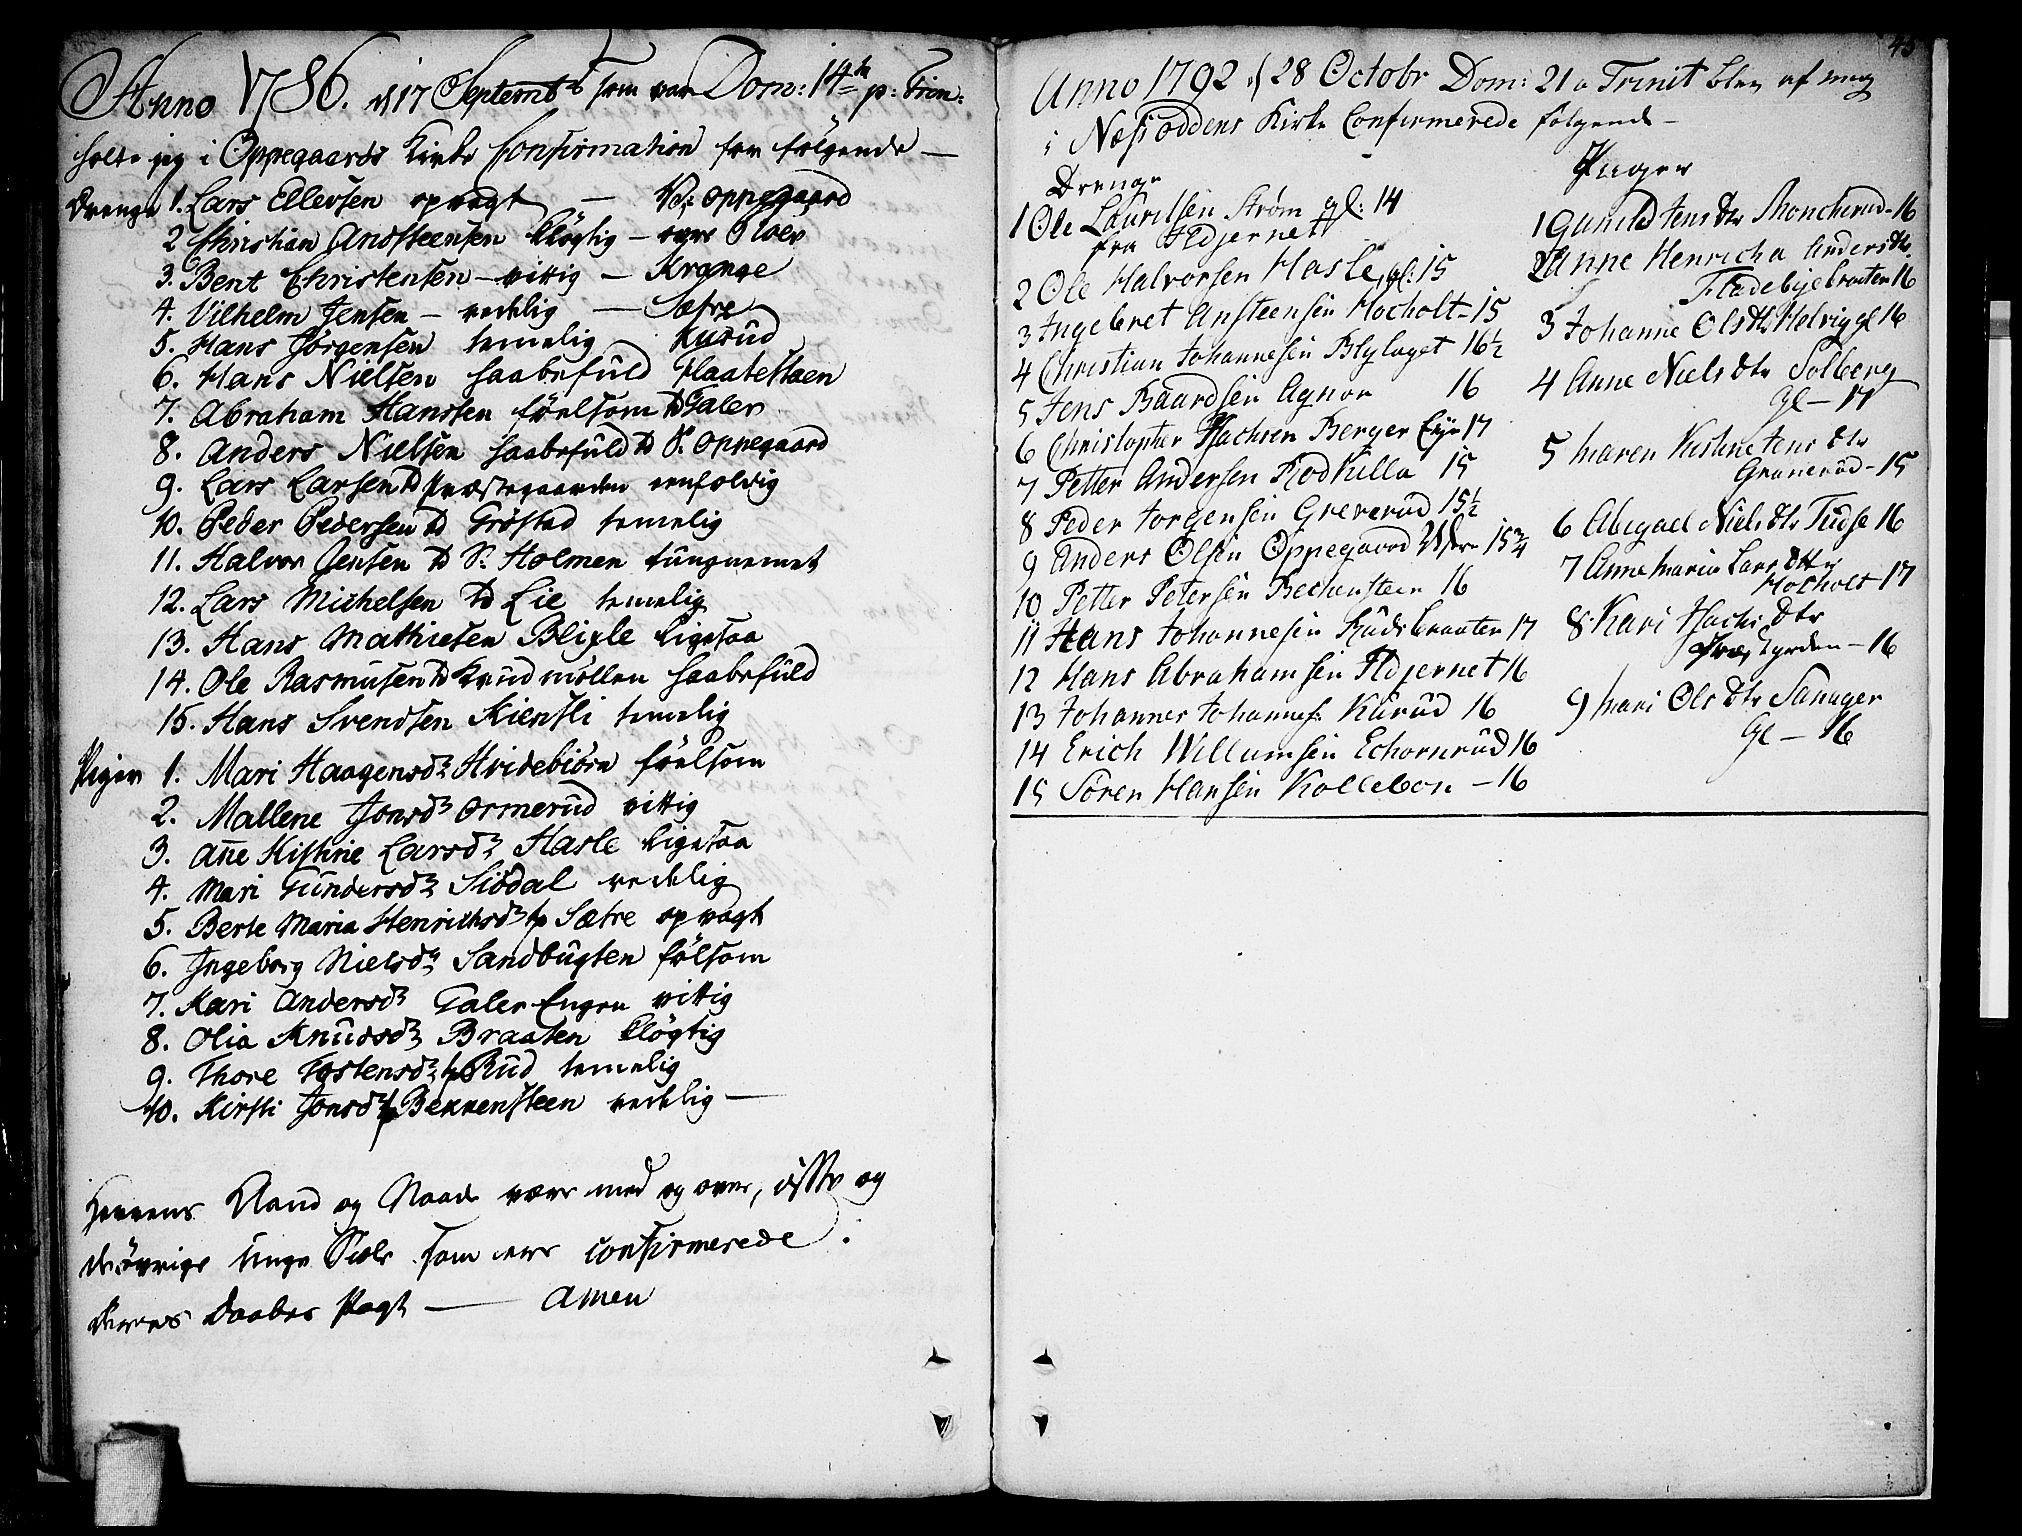 Anno 1786. d 17 Septemb som var Dom: 14de p: Trin:
holte jeg i Oppegaards Kirke Confirmation for følgende —
Drenge 1. Lars Ellevsen opvagt — Oppegaard
2 Christian Andsteensen kløgtig —
3. Bent Christensen — vittig — Krange
4. Vilhelm Jensen — reedelig — Sætre
5. Hans Jørgensen temelig Kurud
6. Hans Nielsen haabefuld Flaatestaen
7. Abraham Hansen følsom Galer
8. Anders Nielsen haabefuld S. Oppegaard
9. Lars Larsen Præstegaarden eenfoldig
10. Peder Pedersen Frøstad temelig
11. Halvor Jensen S. Holmen tungnemet
12. Lars Michelsen Lie temelig
13. Hans Mathiesen Blixle ligesaa
14. Ole Rasmusen Krudmøllen haabefuld
15. Hans Svendsen Kiensli temelig
Piger 1. Mari Haagensdr Hvidebiørn følsom
2. Mallene Jonsdr Ormerud vittig
3. Ane Kistine Larsdr Hasle ligesaa
4. Mari Gundersdr Siødal reedelig
5. Berte Maria Henrichsdr Sætre opvagt
6. Ingeborg Nielsdr Sandbugten følsom
7. Kari Andersdr Galer Engen vittig
8. Olia Knudsdr Braaten kløgtig
9. Thore Tostensdr Rud temelig
10. Kirsti Jonsdr Bekkensteen reedelig —
Herrens Aand og Naade være med og over, disse og
de øvrige unge Siæle som her confirmerede
deres Daabes Pagt — Amen
45
Anno 1792 d 28 Octobr Dom: 21 a Trinit blev af mig
i Nesoddens Kirke Confirmerede følgende —
Drenge
1 Ole Lauritsen Strøm gl: 14
fra Fldjernet
2 Ole Halvorsen Hasle, gl: 15
3 Ingebret Ansteensen Hocholt — 15
4 Christian Johannesen Blylaget 16½
5 Jens Baardsen Agnor 16
6 Christopher Hachsen Berger Eje 17
7 Petter Andersen Rodkilla 15
8 Peder Jorgensen Greverud 15½
9 Anders Olsen Oppegaard 15¾
10 Petter Petersen Bechensteen 16
11 Hans Johannesen Rudsbraaten 17
12 Hans Abrahamsen Fldjernet 16
13 Johannes Johannes: Kurud 16
14 Erich Willumsen Echornrud 16
15 Søren Hansen Kollebon — 16
Piger
1 Gunild Jens dtr Moncherud — 16
2 Anne Henricha Anders dtr
Fladebyebraaten 16
3 Johanne Ols dtr Helvig gl 16
4 Anne Niels dtr Solberg
Gl — 17
5 Maren Kistine Jens dtr
Granerud — 15
6 Abigael Niels dtr Tudse 16
7 Anne Maria Lars dttr
Hocholt 17
8 Kari Hachs dtr
Præstgrden — 16
9 Mari Ols dtr Sanager
Gl — 16